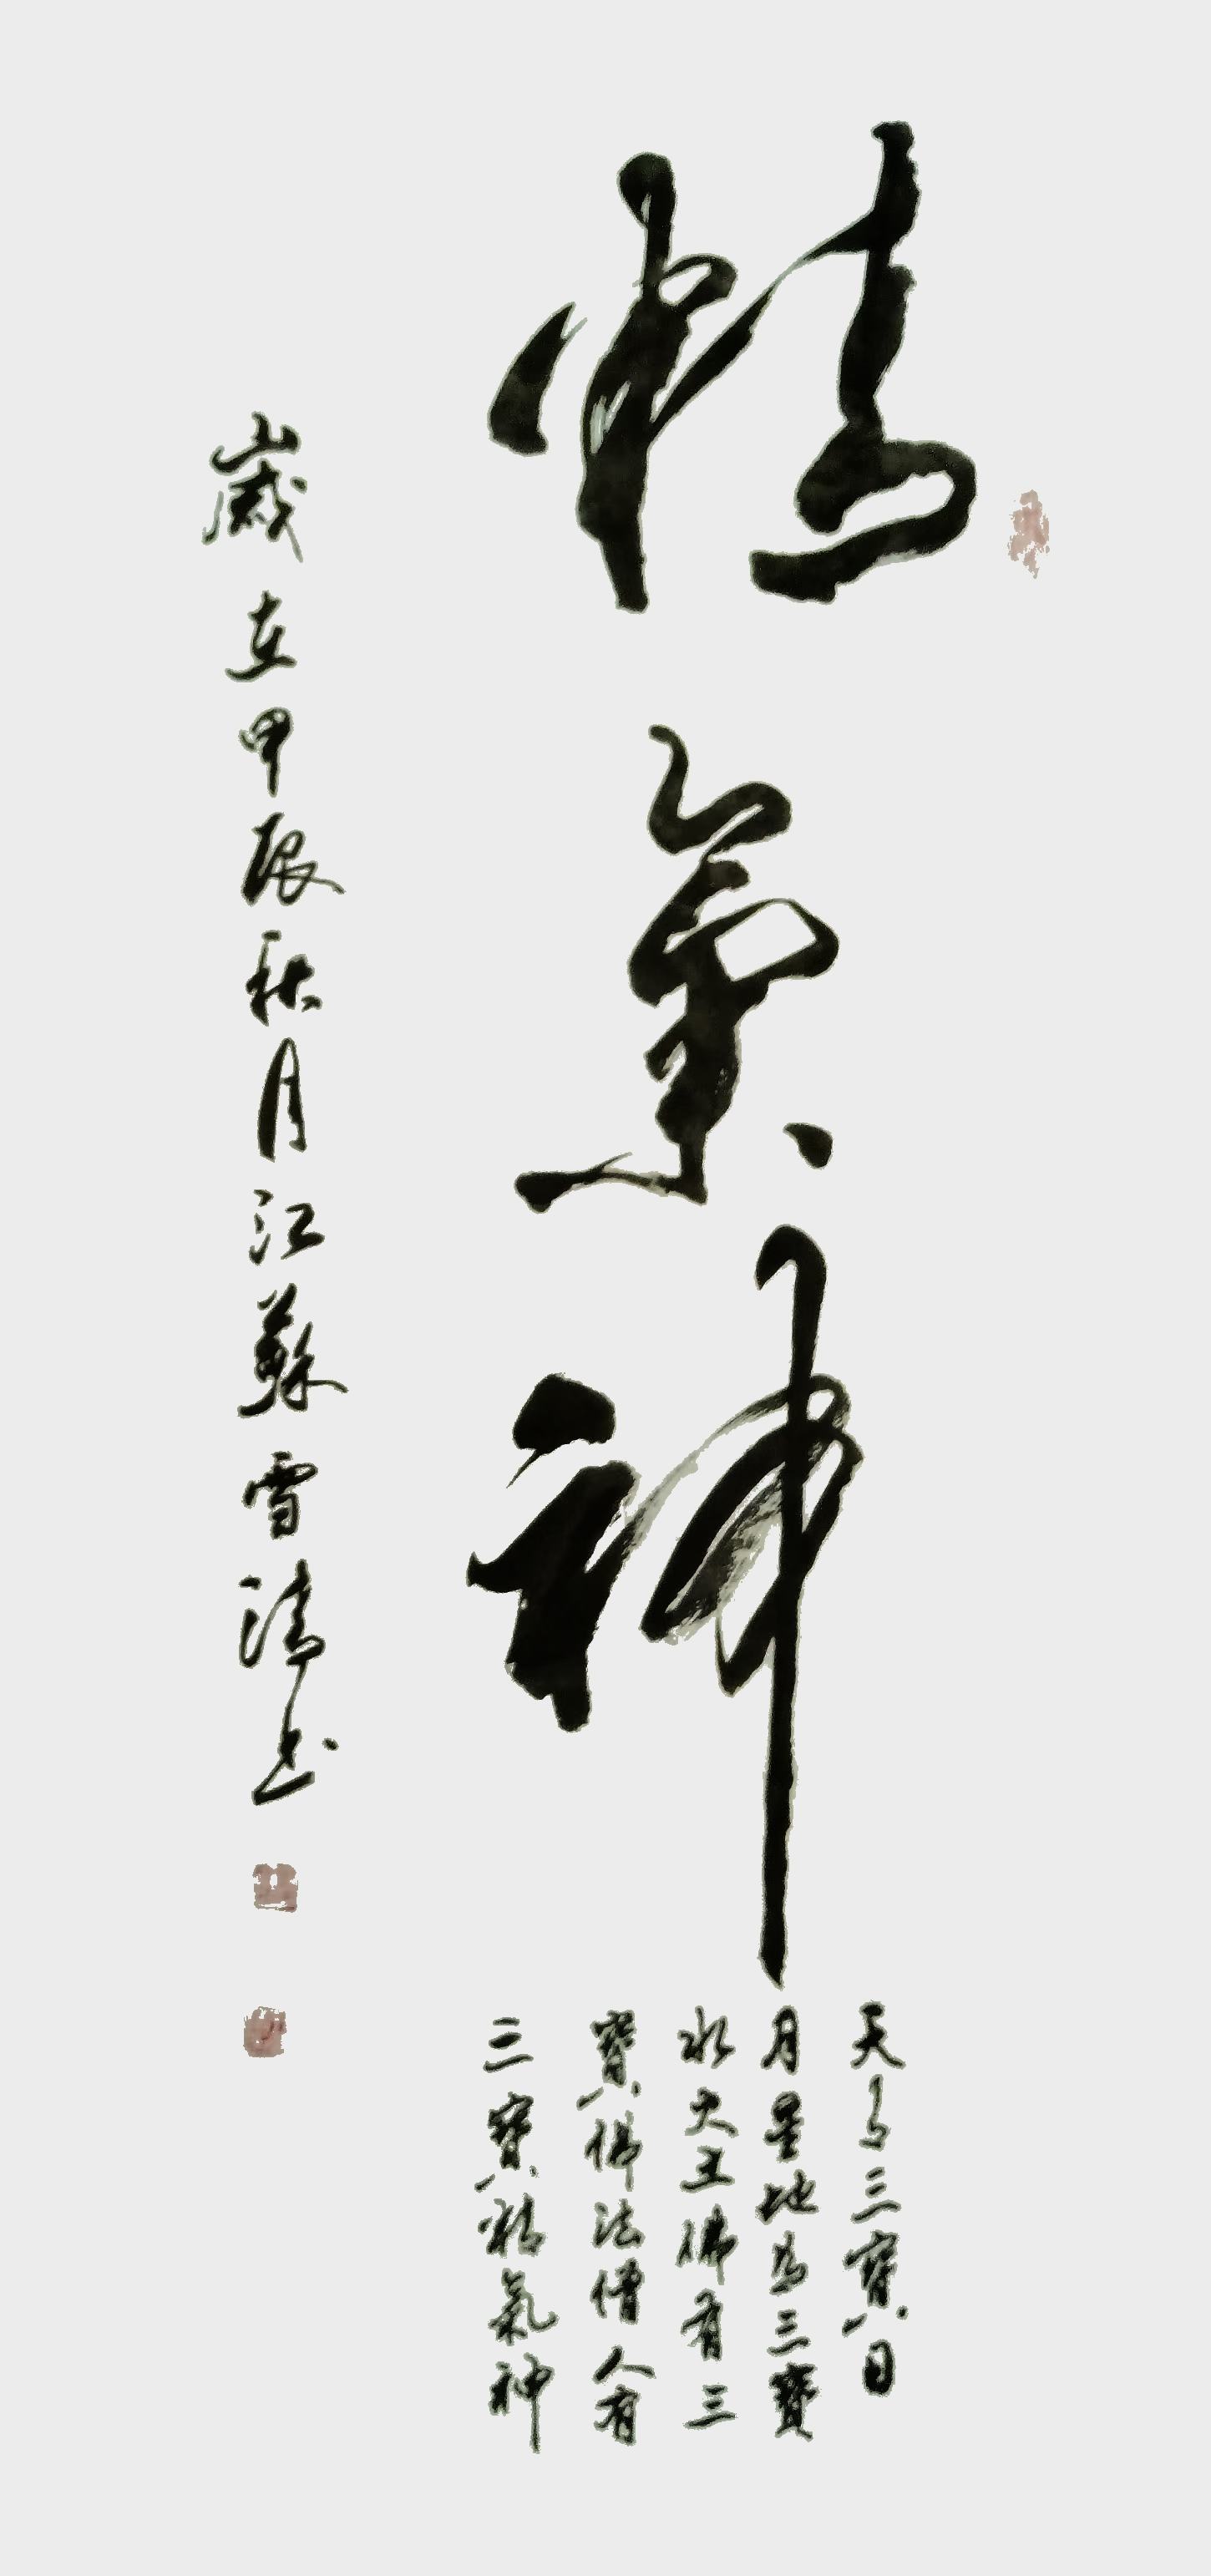 精氣神
天三寶日
月星地為三寶
水火土佛有三
寶佛法僧人有
三寶精氣神
歲在甲辰秋月江蘇雪清书